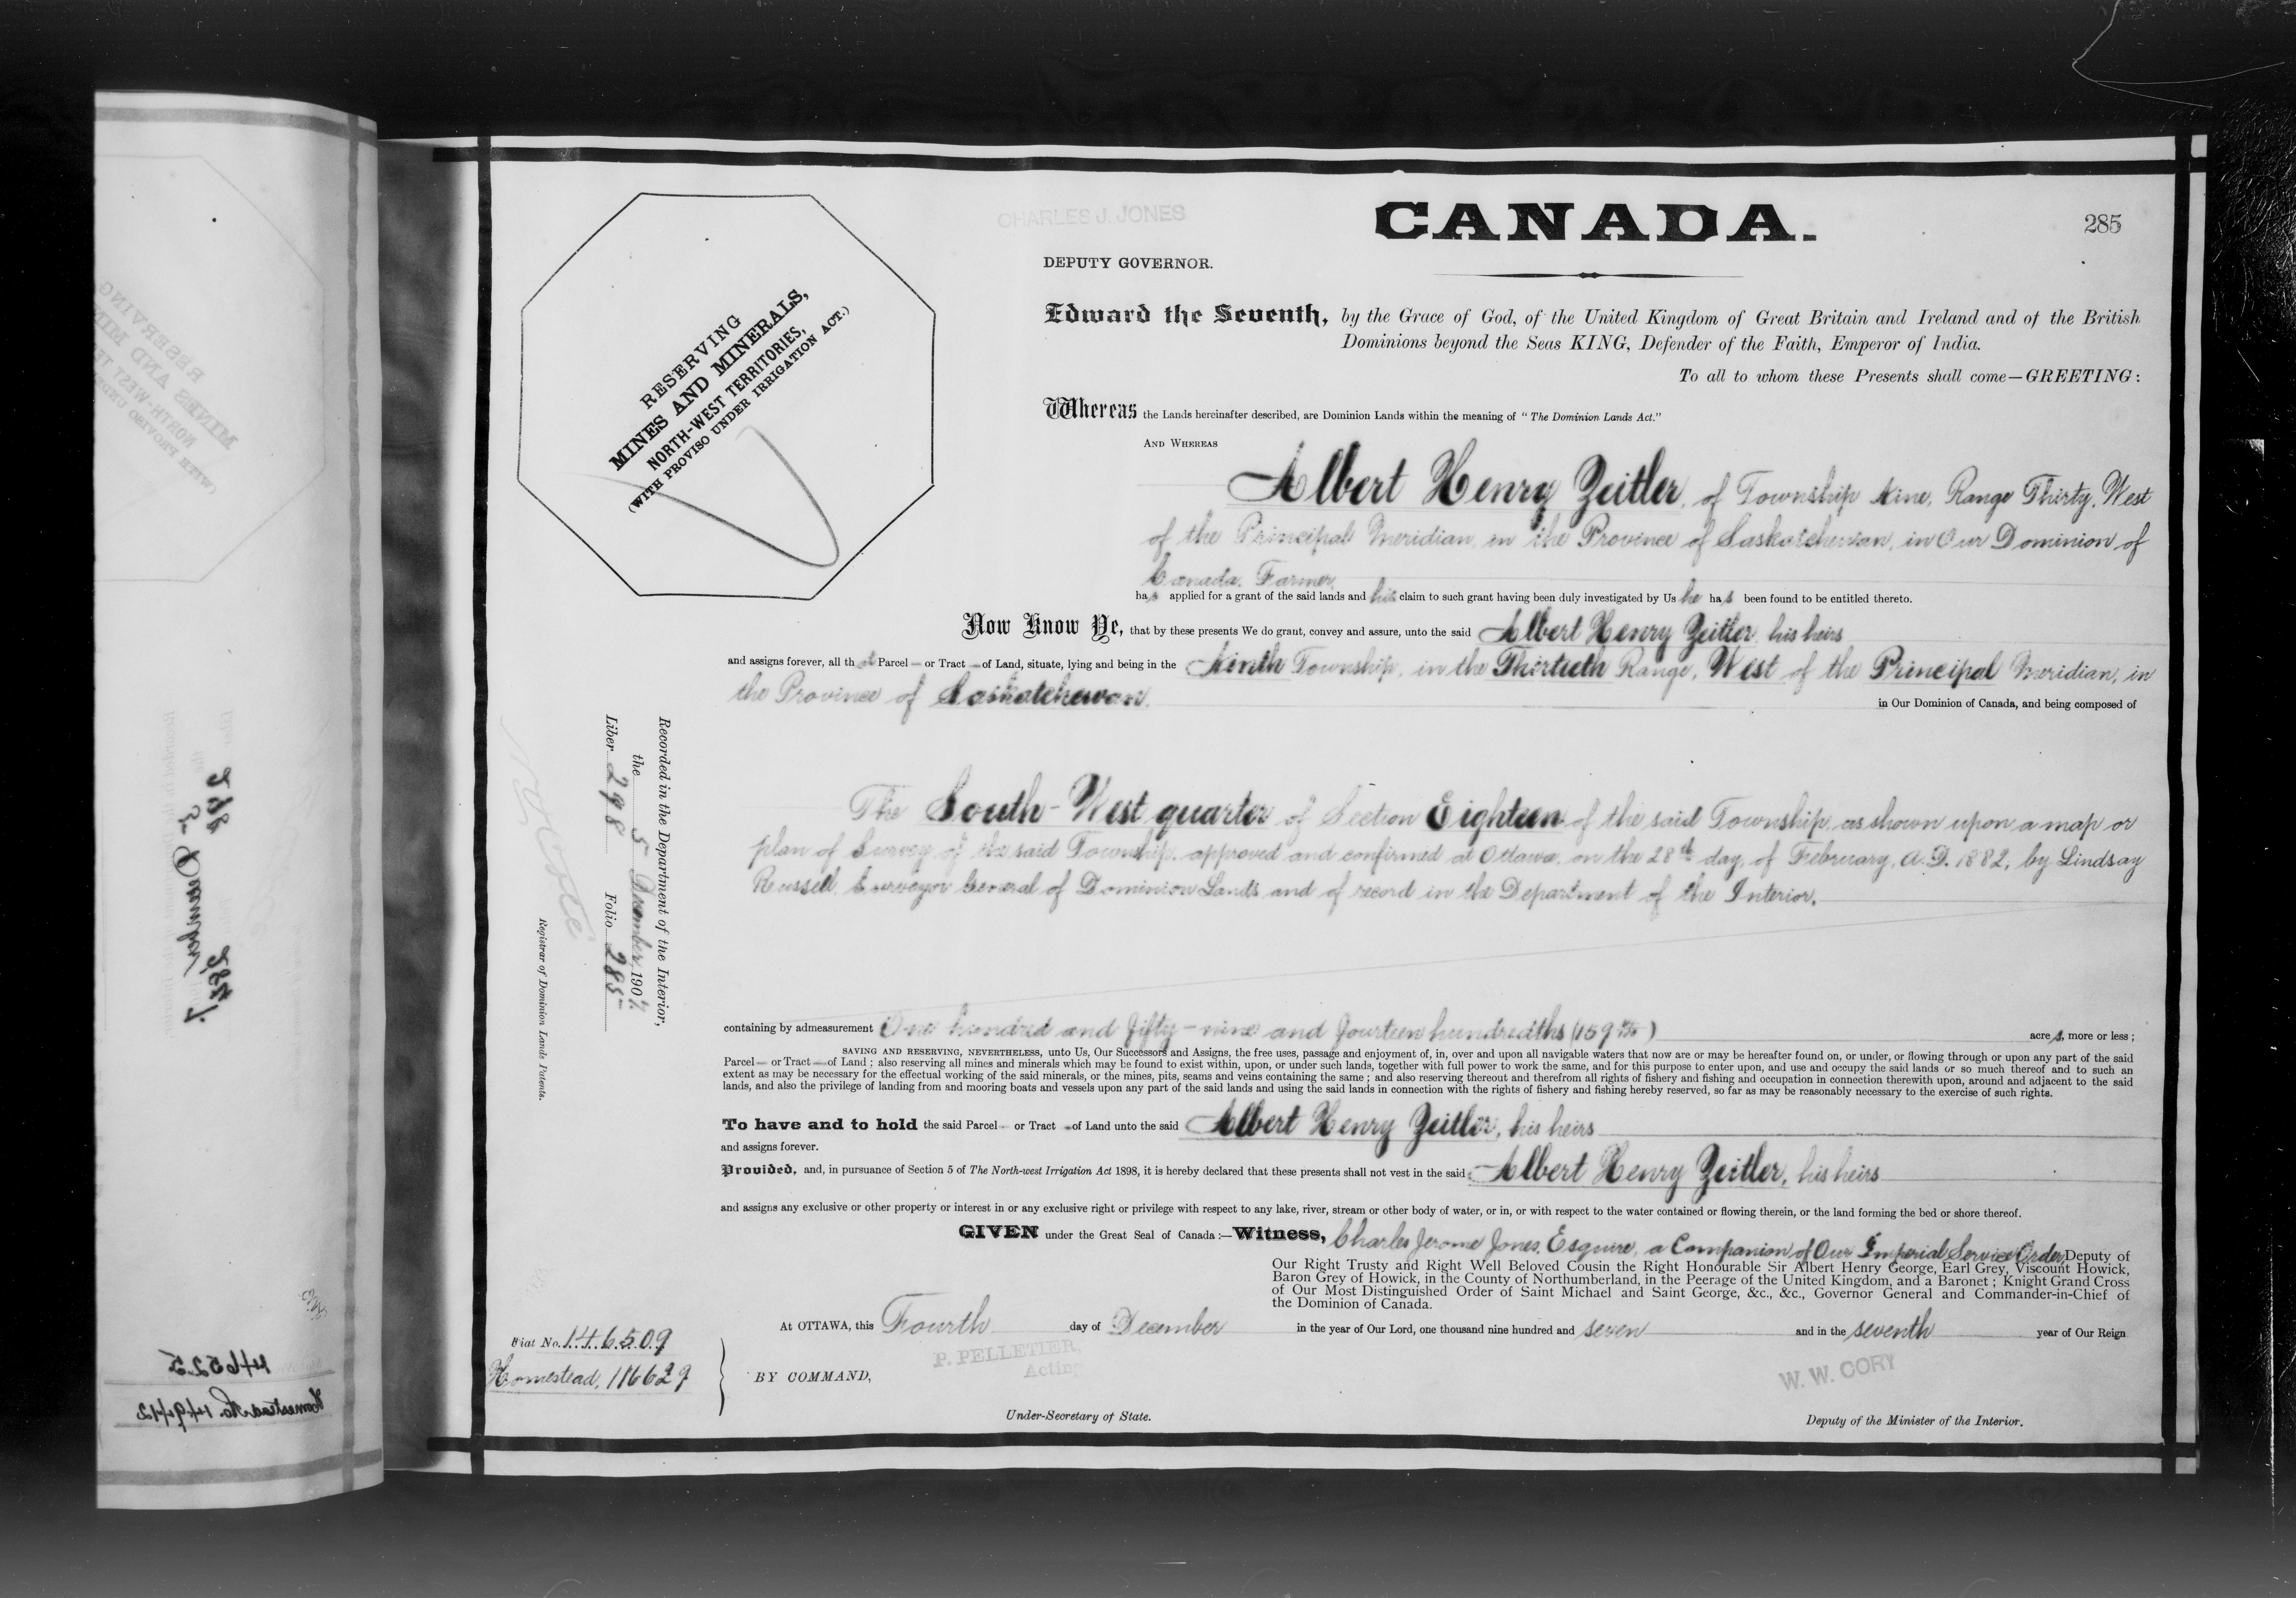 CHARLES J. JONES
CANADA.
285
DEPUTY GOVERNOR.
RESERVING
MINES AND MINERALS,
NORTH-WEST TERRITORIES,
(WITH PROVISO UNDER IRRIGATION ACT.)
Edward the Seventh, by the Grace of God, of the United Kingdom of Great Britain and Ireland and of the British
Dominions beyond the Seas KING, Defender of the Faith, Emperor of India.
To all to whom these Presents shall come—GREETING:
Whereas the Lands hereinafter described, are Dominion Lands within the meaning of "The Dominion Lands Act."
AND WHEREAS
Albert Henry Zeitler, of Township Nine, Range Thirty, West
of the Principal Meridian, in the Province of Saskatchewan, in Our Dominion of
Canada, Farmer,
has applied for a grant of the said lands and his claim to such grant having been duly investigated by Us he has been found to be entitled thereto.
Now Know Ye, that by these presents We do grant, convey and assure, unto the said Albert Henry Zeitler, his heirs
and assigns forever, all that Parcel — or Tract — of Land, situate, lying and being in the Ninth Township, in the Thirtieth Range, West of the Principal Meridian, in
the Province of Saskatchewan, in Our Dominion of Canada, and being composed of
The South-West quarter of Section Eighteen of the said Township, as shown upon a map or
plan of Survey of the said Township, approved and confirmed at Ottawa, on the 28th day of February, A.D. 1882, by Lindsay
Russell, Surveyor General of Dominion Lands, and of record in the Department of the Interior.
Recorded in the Department of the Interior,
the 5 December, 1907
Liber 298 Folio 285
Registrar of Dominion Lands Patents.
containing by admeasurement One hundred and fifty-nine and fourteen hundredths (159 14/100) acres, more or less;
SAVING AND RESERVING, NEVERTHELESS, unto Us, Our Successors and Assigns, the free uses, passage and enjoyment of, in, over and upon all navigable waters that now are or may be hereafter found on, or under, or flowing through or upon any part of the said
Parcel — or Tract — of Land; also reserving all mines and minerals which may be found to exist within, upon, or under such lands, together with full power to work the same, and for this purpose to enter upon, and use and occupy the said lands or so much thereof and to such an
extent as may be necessary for the effectual working of the said minerals, or the mines, pits, seams and veins containing the same; and also reserving thereout and therefrom all rights of fishery and fishing and occupation in connection therewith upon, around and adjacent to the said
lands, and also the privilege of landing from and mooring boats and vessels upon any part of the said lands and using the said lands in connection with the rights of fishery and fishing hereby reserved, so far as may be reasonably necessary to the exercise of such rights.
To have and to hold the said Parcel — or Tract — of Land unto the said Albert Henry Zeitler, his heirs
and assigns forever.
Provided, and, in pursuance of Section 5 of The North-west Irrigation Act 1898, it is hereby declared that these presents shall not vest in the said Albert Henry Zeitler, his heirs
and assigns any exclusive or other property or interest in or any exclusive right or privilege with respect to any lake, river, stream or other body of water, or in, or with respect to the water contained or flowing therein, or the land forming the bed or shore thereof.
GIVEN under the Great Seal of Canada:—Witness, Charles Jerome Jones, Esquire, a Companion of Our Imperial Service Order, Deputy of
Our Right Trusty and Right Well Beloved Cousin the Right Honourable Sir Albert Henry George, Earl Grey, Viscount Howick,
Baron Grey of Howick, in the County of Northumberland, in the Peerage of the United Kingdom, and a Baronet; Knight Grand Cross
of Our Most Distinguished Order of Saint Michael and Saint George, &c., &c., Governor General and Commander-in-Chief of
the Dominion of Canada.
At OTTAWA, this Fourth day of December in the year of Our Lord, one thousand nine hundred and seven and in the seventh year of Our Reign
Fiat No. 146509
Homestead, 116629
BY COMMAND,
P. PELLETIER,
Acting
Under-Secretary of State.
W. W. CORY
Deputy of the Minister of the Interior.
146525
Homestead No. 149442